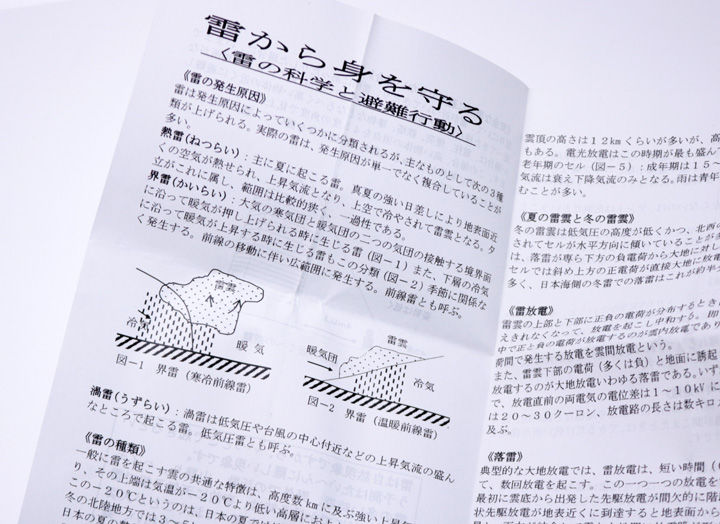 雷から身を守る
〈雷の科学と避難行動〉
《雷の発生原因》
雷は発生原因によっていくつかに分類されるが、主なものとして次の3種
類が上げられる。実際の雷は、発生原因が単一でなく複合していることが
多い。
熱雷(ねつらい)：主に夏に起こる雷。真夏の強い日差しにより地表面近
くの空気が熱せられ、上昇気流となり、上空で冷やされて雷雲となる。夕
立がこれに属し、範囲は比較的狭く、一過性である。
界雷(かいらい)：大気の寒気団と暖気団の二つの気団の接触する境界面
に沿って暖気が押し上げられる時に生じる雷(図－1)また、下層の冷気
に沿って暖気が上昇する時に生じる雷もこの分類(図－2)季節に関係な
く発生する。前線の移動に伴い広範囲に発生する。前線雷とも呼ぶ。
雷雲
冷気
暖気
図－1 界雷(寒冷前線雷)
雷雲
暖気団
冷気
図－2 界雷(温暖前線雷)
渦雷(うずらい)：渦雷は低気圧や台風の中心付近などの上昇気流の盛ん
なところで起こる雷。低気圧雷とも呼ぶ。
《雷の種類》
一般に雷を起こす雲の共通な特徴は、高度数kmに及ぶ強い上昇
り、その上端は気温が－20℃より低い高層におよ
この－20℃というのは、日本の夏では
冬の北陸地方では3～5
日本の夏の熱
雲頂の高さは12kmくらいが多いが、高
もある。電光放電はこの時期が最も盛んで
老年期のセル(図－5)：成年期は15～
気流は衰え下降気流のみとなる。雨は青年
むことが多い。
《夏の雷雲と冬の雷雲》
冬の雷雲は低気圧の高度が低くかつ、北西の
されてセルが水平方向に傾いていることが多
は、落雷が専ら下方の負電荷から大地に対し
セルでは斜め上方の正電荷が直接大地に放電
多く、日本海側の冬雷での落雷はこれが約半
《雷放電》
雷雲の上部と下部に正負の電荷が分布するとき、
えきれなくなって、放電を起こし中和する。即
中で正と負の電荷が放電するのが雲内放電であり
荷間で発生する放電を雲間放電という。
また、雷雲下部の電荷(多くは負)と地面に誘起
放電するのが大地放電いわゆる落雷である。いず
で、放電直前の両電気の電位差は1～10kVに
は20～30クーロン、放電路の長さは数キロメ
及ぶ。
《落雷》
典型的な大地放電では、雷放電は、短い時間(
て、数回放電を起こす。この一つ一つの放電を
最初に雲底から出発した先駆放電が間欠的に階
状先駆放電が地表近くに到達すると地表面から